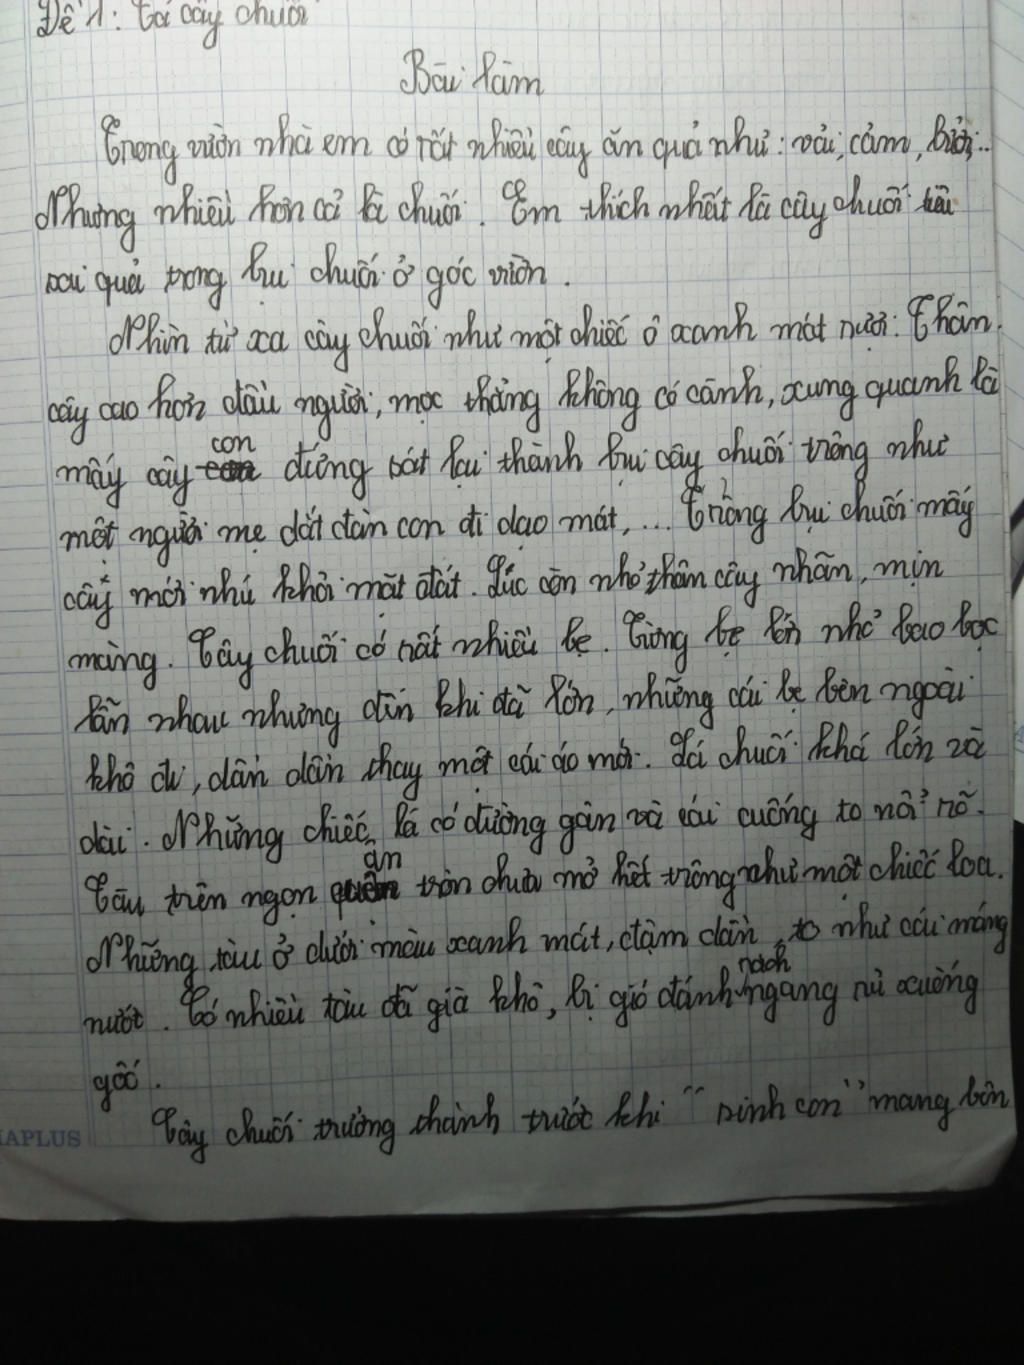 Đề 1: tả cây chuối
Bài làm
Trong vườn nhà em có rất nhiều cây ăn quả như: vải, cảm, bưởi..
Nhưng nhiều hơn cả là chuối. Em thích nhất là cây chuối tiêu
sai quả trong bụi chuối ở góc vườn.
Nhìn từ xa cây chuối như một chiếc ô xanh mát rượi. Thân
cây cao hơn đầu người, mọc thẳng không có cành, xung quanh là
mấy cây con đứng sát lại thành bụi cây chuối trông như
một người mẹ dắt đàn con đi dạo mát, ... Trồng bụi chuối mấy
cây mới nhú khỏi mặt đất. Lúc còn nhỏ thân cây nhẵn, mịn
màng. Cây chuối có rất nhiều bẹ. Từng bẹ lớn nhỏ bao bọc
lẫn nhau nhưng đến khi đã lớn, những cái bẹ bên ngoài
khô đi, dần dần thay một cái áo mới. Lá chuối khá lớn và
dài. Những chiếc lá có đường gân và cái cuống to nổi rõ.
Tàu trên ngọn quận tròn chưa mở hết trông như một chiếc loa.
Những tàu ở dưới màu xanh mát, đậm dần, to như cái máng
nước. Có nhiều tàu đã già khô, bị gió đánh rách ngang rủ xuống
gốc.
Cây chuối trưởng thành trước khi "sinh con" mang bên
APLUS